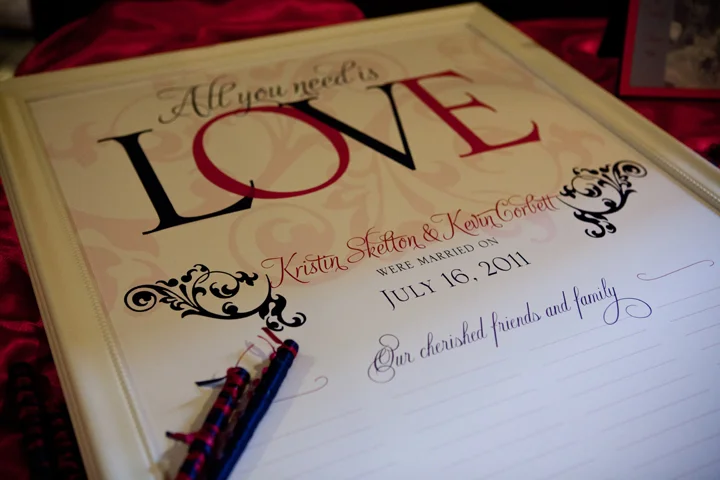 All you need is
LOVE
Kristin Skelton & Kevin Corbett
WERE MARRIED ON
JULY 16, 2011
Our cherished friends and family